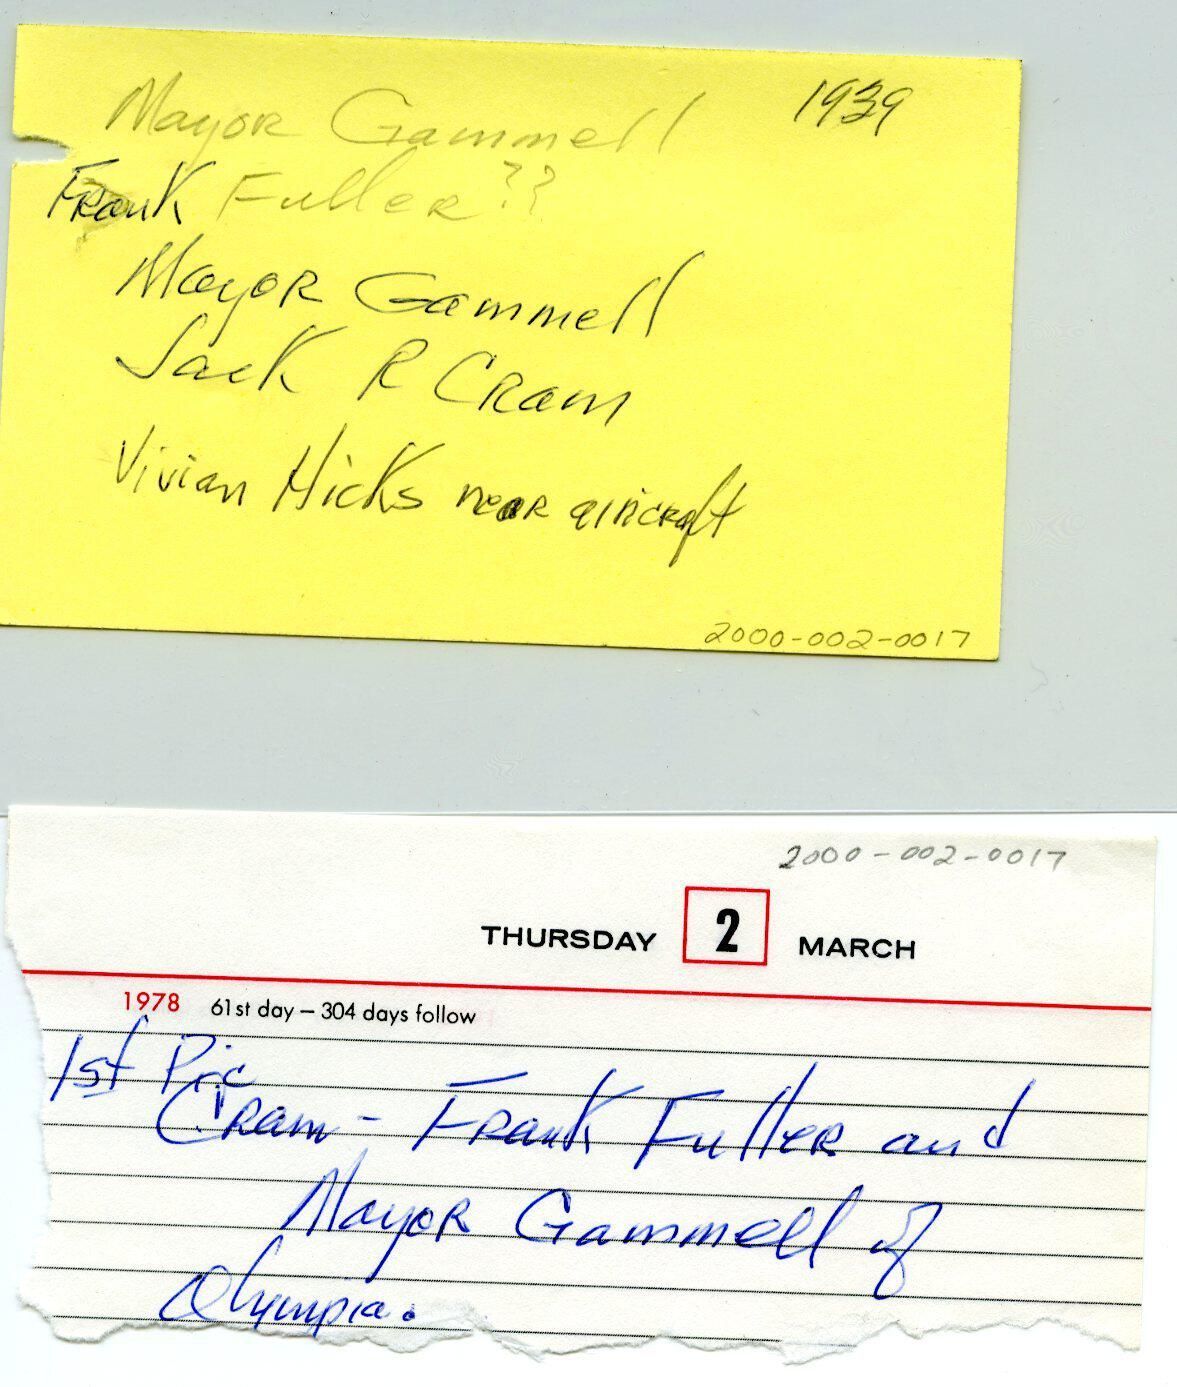 Mayor Gammell 1939
Frank Fuller ??
Mayor Gammell
Jack R Cram
Vivian Hicks near aircraft
2000-002-0017
2000-002-0017
THURSDAY 2 MARCH
1978 61st day – 304 days follow
1st Pic
Cram - Frank Fuller and
Mayor Gammell of
Olympia.